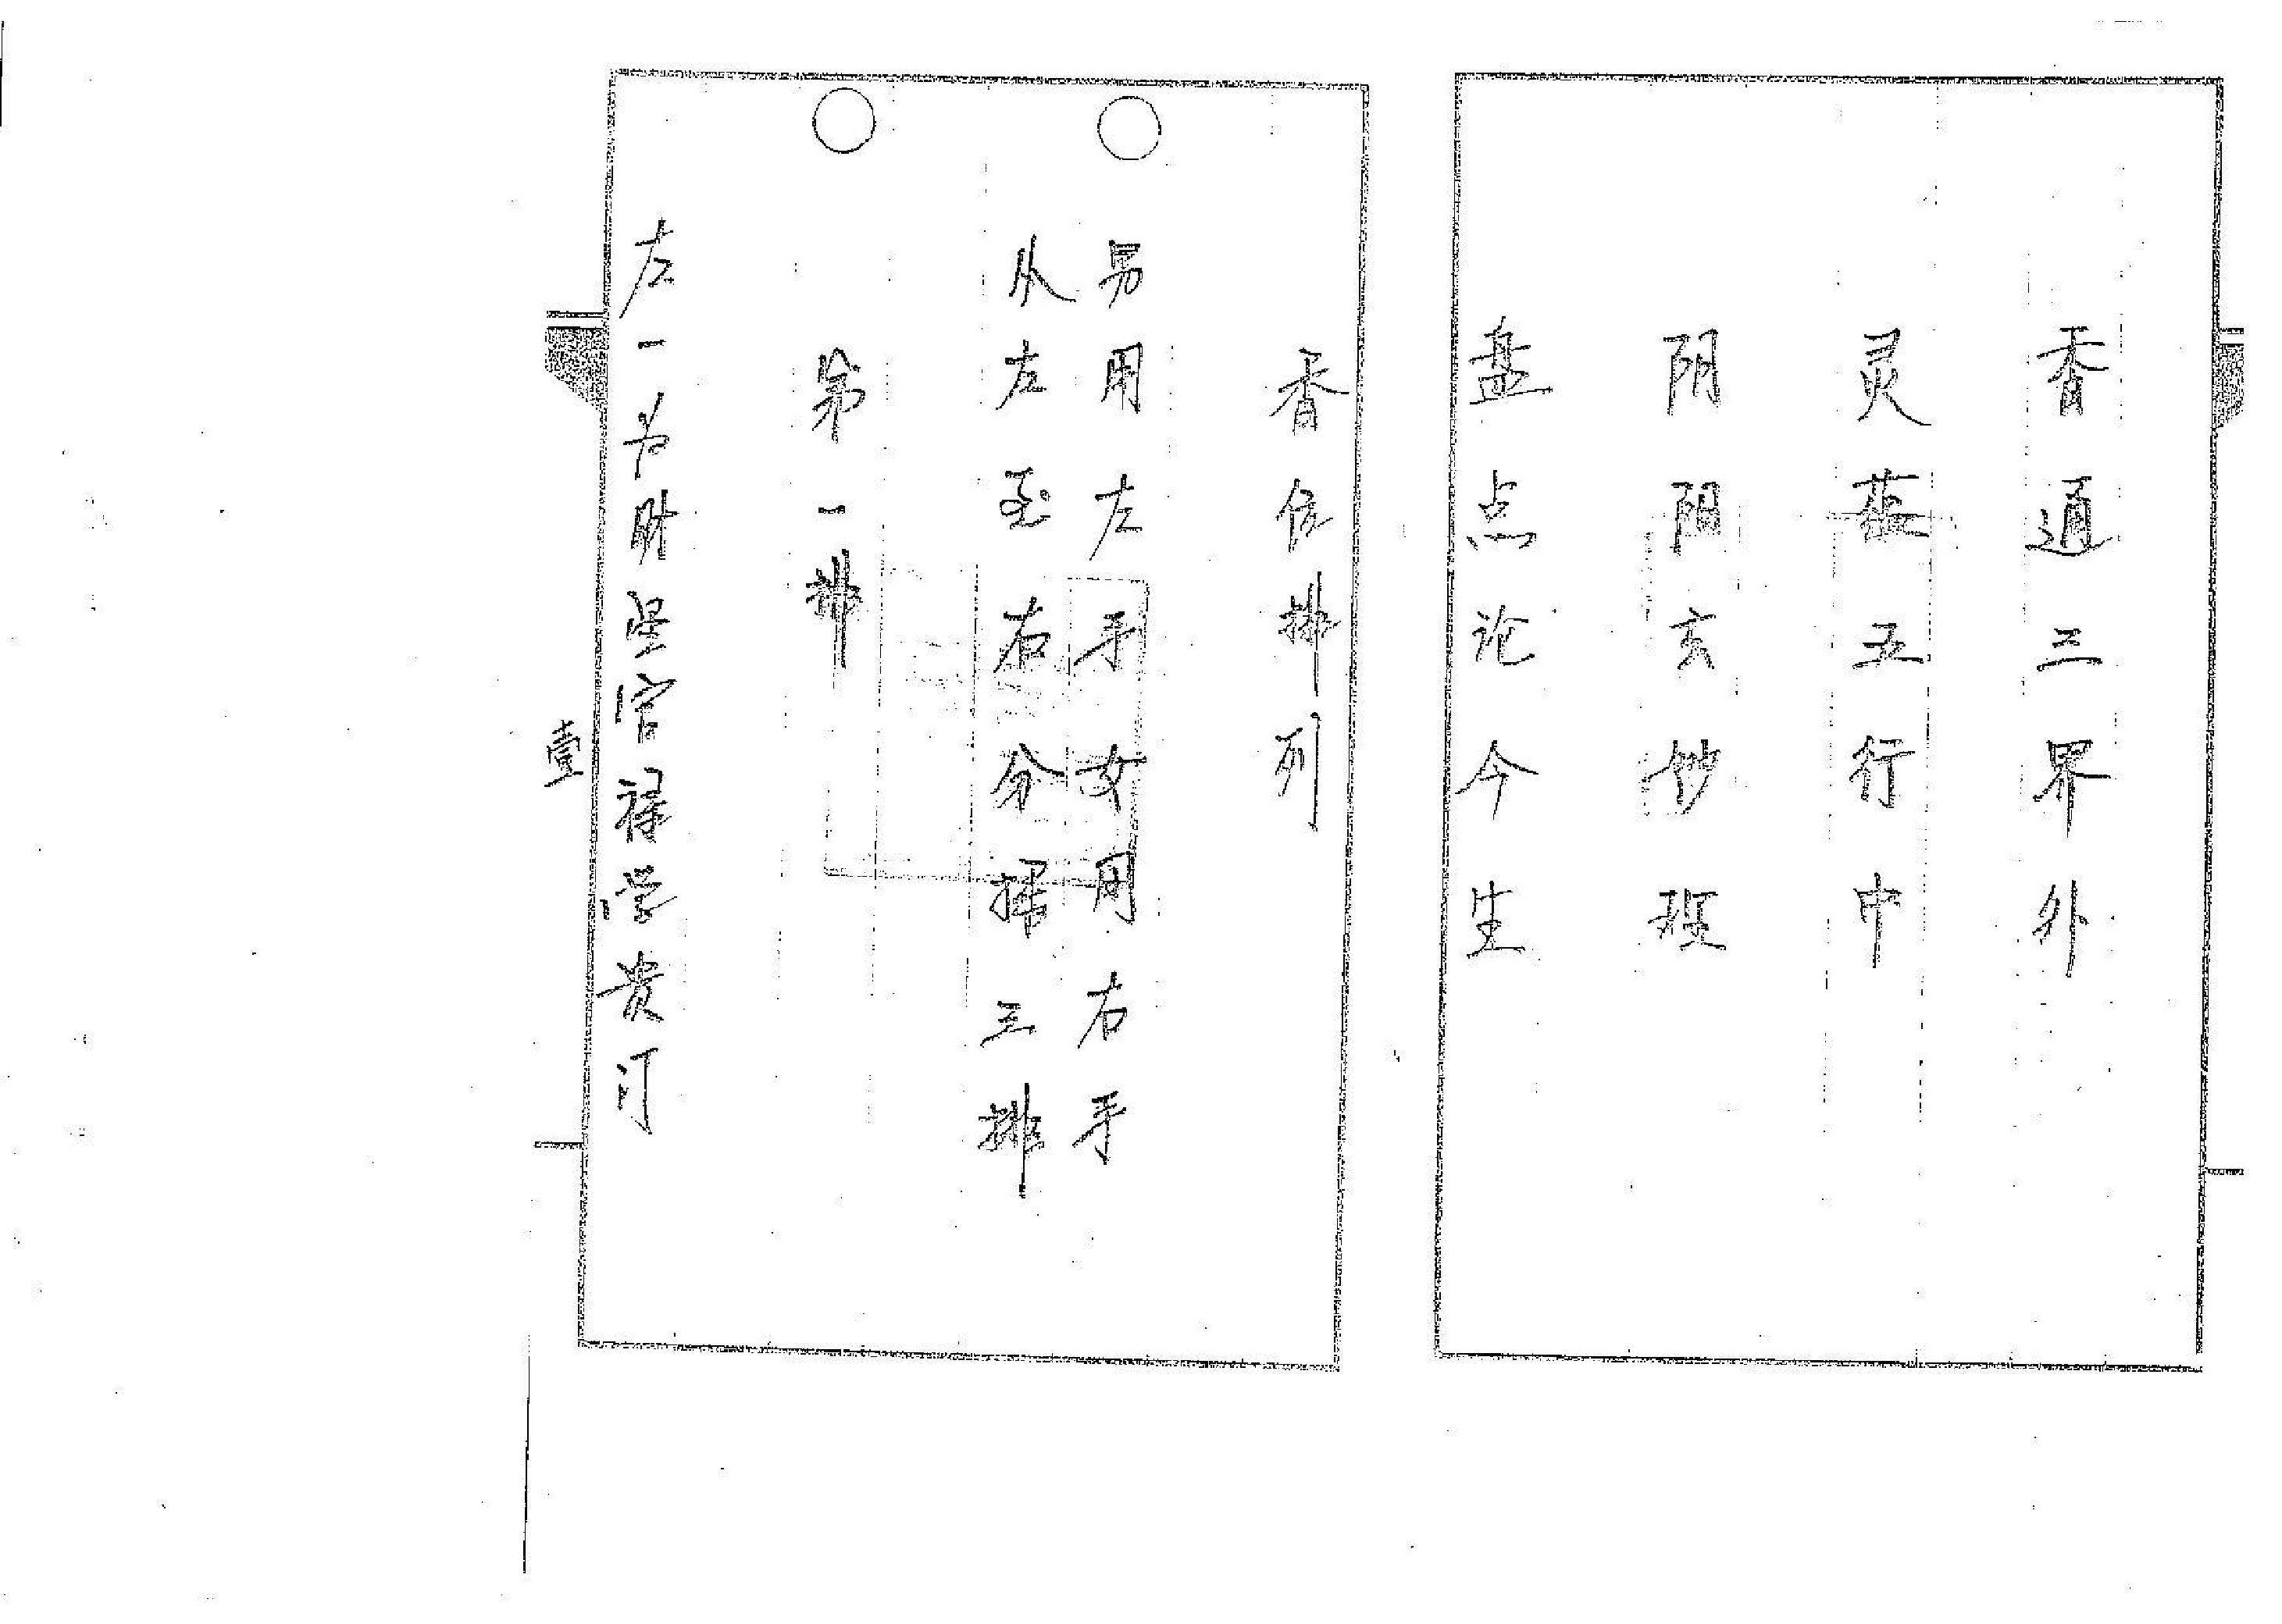 香通三界外
灵蕴五行中
阴阳玄妙理
盘点论今生
香位排列
男用左手女用右手
从左至右分插三排
第一排
左一为财星官禄学贵门
壹